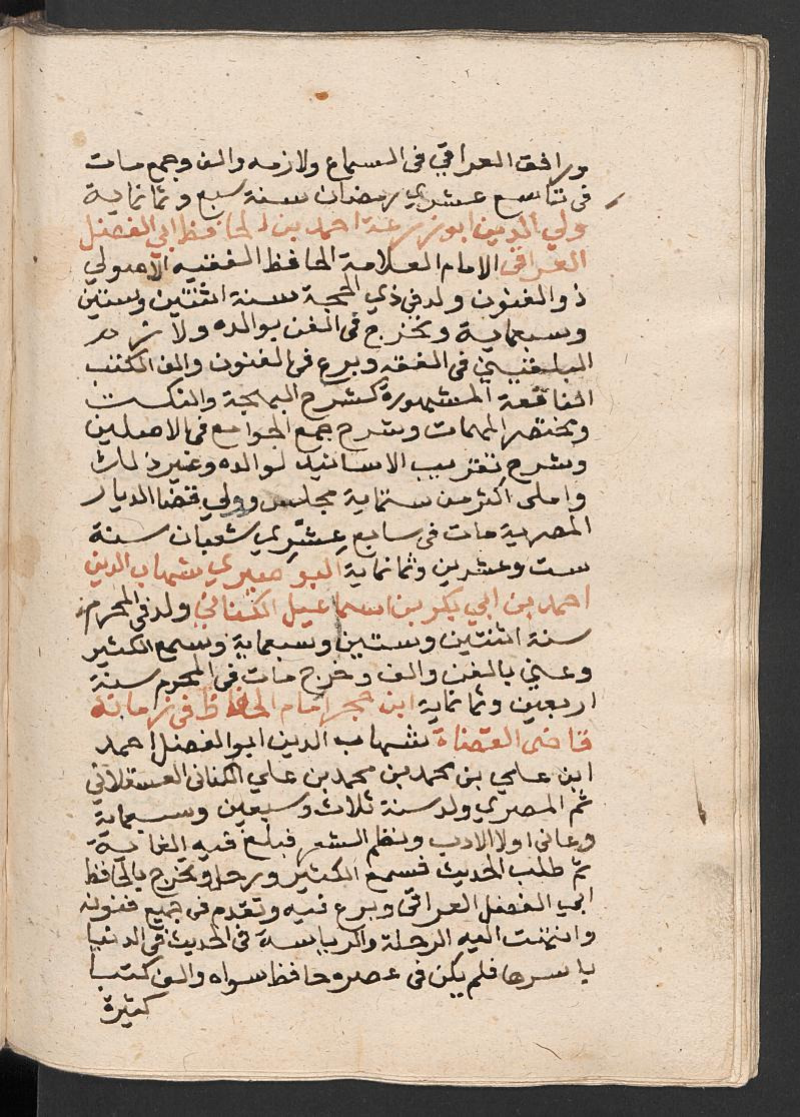 ورافق العراقي فى السماع ولازمه والف وجمع مات
فى تاسع عشري رمضان سنة سبع وثمانماية
ولي الدين ابو زرعة احمد بن الحافظ ابي الفضل
العراقى الامام العلامة الحافظ الفقيه الاصولي
ذو الفنون ولد فى ذي الحجة سنة اثنتين وستين
وسبعماية وتخرج فى الفن بوالده ولازم
البلقيني فى الفقه وبرع فى الفنون والف الكتب
النافعة المشهورة كشرح البهجة والنكت
ومختصر المهمات وشرح جمع الجوامع فى الاصلين
وشرح تقريب الاسانيد لوالده وغير ذلك
واملى اكثر من ستماية مجلس وولي قضا الديار
المصرية مات فى سابع عشري شعبان سنة
ست وعشرين وثمانماية البوصيري شهاب الدين
احمد بن ابي بكر بن اسماعيل الكناني ولد فى المحرم
سنة اثنتين وستين وسبعماية وسمع الكثير
وعني بالفن والف وخرج مات فى المحرم سنة
اربعين وثمانماية ابن حجر امام الحفاظ فى زمانه
قاضى القضاة شهاب الدين ابو الفضل احمد
ابن علي بن محمد بن محمد بن علي الكنانى العسقلاني
ثم المصري ولد سنة ثلاث وسبعين وسبعماية
وعانى اولا الادب ونظم الشعر فبلغ فيه الغاية
ثم طلب الحديث فسمع الكثير ورحل وتخرج بالحافظ
ابي الفضل العراقى وبرع فيه وتقدم فى جميع فنونه
وانتهت اليه الرحلة والرياسة فى الحديث فى الدنيا
باسرها فلم يكن فى عصره حافظ سواه والف كتبا
كثيرة